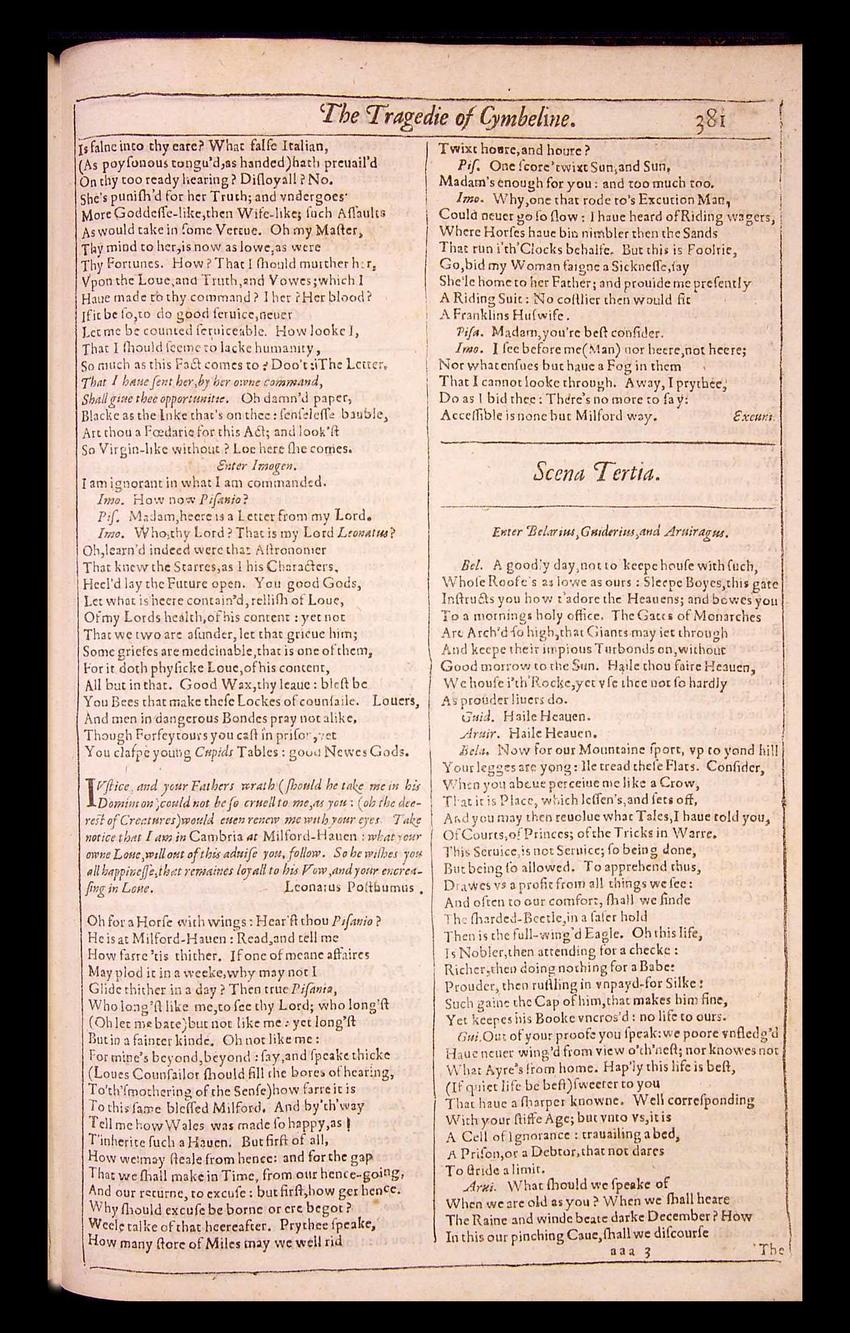 The Tragedie of Cymbeline. 381
Is falne into thy eare? What falſe Italian,
(As poyſonous tongu'd,as handed)hath preuail'd
On thy too ready hearing? Diſloyall? No.
She's puniſh'd for her Truth; and vndergoes
More Goddeſſe-like,then Wife-like; ſuch Aſſaults
As would take in ſome Vertue. Oh my Maſter,
Thy mind to her,is now as lowe,as were
Thy Fortunes. How? That I ſhould murther her,
Vpon the Loue,and Truth,and Vowes;which I
Haue made to thy command? I her? Her blood?
If it be ſo,to do good ſeruice,neuer
Let me be counted ſeruiceable. How looke I,
That I ſhould ſeeme to lacke humanity,
So much as this Fact comes to? Doo't: The Letter.
That I haue ſent her,by her owne command,
Shall giue thee opportunitie. Oh damn'd paper,
Blacke as the Inke that's on thee: ſenſeleſſe bauble,
Art thou a Fœdarie for this Act; and look'ſt
So Virgin-like without? Loe here ſhe comes.
Enter Imogen.
I am ignorant in what I am commanded.
Imo. How now Piſanio?
Piſ. Madam,heere is a Letter from my Lord.
Imo. Who,thy Lord? That is my Lord Leonatus?
Oh,learn'd indeed were that Aſtronomer
That knew the Starres,as I his Characters,
Heel'd lay the Future open. You good Gods,
Let what is heere contain'd,relliſh of Loue,
Of my Lords health,of his content: yet not
That we two are aſunder,let that grieue him;
Some griefes are medcinable,that is one of them,
For it doth phyſicke Loue,of his content,
All but in that. Good Wax,thy leaue: bleſt be
You Bees that make theſe Lockes of counſaile. Louers,
And men in dangerous Bondes pray not alike,
Though Forfeytours you caſt in priſon,yet
You claſpe young Cupids Tables: good Newes Gods.
IVſtice, and your Fathers wrath (ſhould he take me in his
Dominion)could not be ſo cruell to me,as you: (oh the dee-
reſt of Creatures)would euen renew me with your eyes. Take
notice that I am in Cambria at Milford-Hauen: what your
owne Loue,will out of this aduiſe you, follow. So he wiſhes you
all happineſſe,that remaines loyall to his Vow,and your encrea-
ſing in Loue. Leonatus Poſthumus.
Oh for a Horſe with wings: Hear'ſt thou Piſanio?
He is at Milford-Hauen: Read,and tell me
How farre 'tis thither. If one of meane affaires
May plod it in a weeke,why may not I
Glide thither in a day? Then true Piſanio,
Who long'ſt like me,to ſee thy Lord; who long'ſt
(Oh let me bate)but not like me: yet long'ſt
But in a fainter kinde. Oh not like me:
For mine's beyond,beyond: ſay,and ſpeake thicke
(Loues Counſailor ſhould fill the bores of hearing,
To'th'ſmothering of the Senſe)how farre it is
To this ſame bleſſed Milford. And by'th'way
Tell me how Wales was made ſo happy,as
T'inherite ſuch a Hauen. But firſt of all,
How we may ſteale from hence: and for the gap
That we ſhall make in Time, from our hence-going,
And our returne, to excuſe: but firſt,how get hence.
Why ſhould excuſe be borne or ere begot?
Weele talke of that heereafter. Prythee ſpeake,
How many ſtore of Miles may we well rid
Twixt houre,and houre?
Piſ. One ſcore'twixt Sun,and Sun,
Madam's enough for you: and too much too.
Imo. Why,one that rode to's Excution Man,
Could neuer go ſo ſlow: I haue heard of Riding wagers,
Where Horſes haue bin nimbler then the Sands
That run i'th'Clocks behalfe. But this is Foolrie,
Go,bid my Woman faigne a Sickneſſe,ſay
She'le home to her Father; and prouide me preſently
A Riding Suit: No coſtlier then would fit
A Franklins Huſwife.
Piſa. Madam,you're beſt conſider.
Imo. I ſee before me(Man) nor heere,not heere;
Nor what enſues but haue a Fog in them
That I cannot looke through. Away, I prythee,
Do as I bid thee: There's no more to ſay:
Acceſſible is none but Milford way. Exeunt.
Scena Tertia.
Enter Belarius,Guiderius,and Aruiragus.
Bel. A goodly day,not to keepe houſe with ſuch,
Whoſe Roofe's as lowe as ours: Sleepe Boyes,this gate
Inſtructs you how t'adore the Heauens; and bowes you
To a mornings holy office. The Gates of Monarches
Are Arch'd ſo high,that Giants may iet through
And keepe their impious Turbonds on,without
Good morrow to the Sun. Haile thou faire Heauen,
We houſe i'th'Rocke,yet vſe thee not ſo hardly
As prouder liuers do.
Guid. Haile Heauen.
Aruir. Haile Heauen.
Bela. Now for our Mountaine ſport, vp to yond hill
Your legges are yong: Ile tread theſe Flats. Conſider,
When you aboue perceiue me like a Crow,
That it is Place, which leſſen's,and ſets off,
And you may then reuolue what Tales,I haue told you,
Of Courts,of Princes; of the Tricks in Warre.
This Seruice,is not Seruice; ſo being done,
But being ſo allowed. To apprehend thus,
Drawes vs a profit from all things we ſee:
And often to our comfort, ſhall we finde
The ſharded-Beetle,in a ſafer hold
Then is the full-wing'd Eagle. Oh this life,
Is Nobler,then attending for a checke:
Richer,then doing nothing for a Babe:
Prouder, then ruſtling in vnpayd-for Silke:
Such gaine the Cap of him,that makes him fine,
Yet keepes his Booke vncros'd: no life to ours.
Gui.Out of your proofe you ſpeak:we poore vnfledg'd
Haue neuer wing'd from view o'th'neſt; nor knowes not
What Ayre's from home. Hap'ly this life is beſt,
(If quiet life be beſt)ſweeter to you
That haue a ſharper knowne. Well correſponding
With your ſtiffe Age; but vnto vs,it is
A Cell of Ignorance: trauailing a bed,
A Priſon,or a Debtor,that not dares
To ſtride a limit.
Arui. What ſhould we ſpeake of
When we are old as you? When we ſhall heare
The Raine and winde beate darke December? How
In this our pinching Caue,ſhall we diſcourſe
aaa 3 The